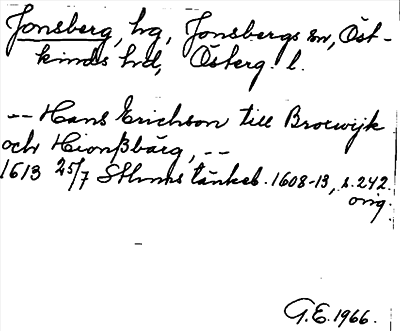 Jonsberg, hg, Jonsbergs sn, Öst-
kinds hd, Österg. l.
-- Hans Erichson till Brocwijk
och Hionßbärg, --
1613 25/7 Sthms tänkeb. 1608-13, s. 242.
orig.
G.E. 1966.